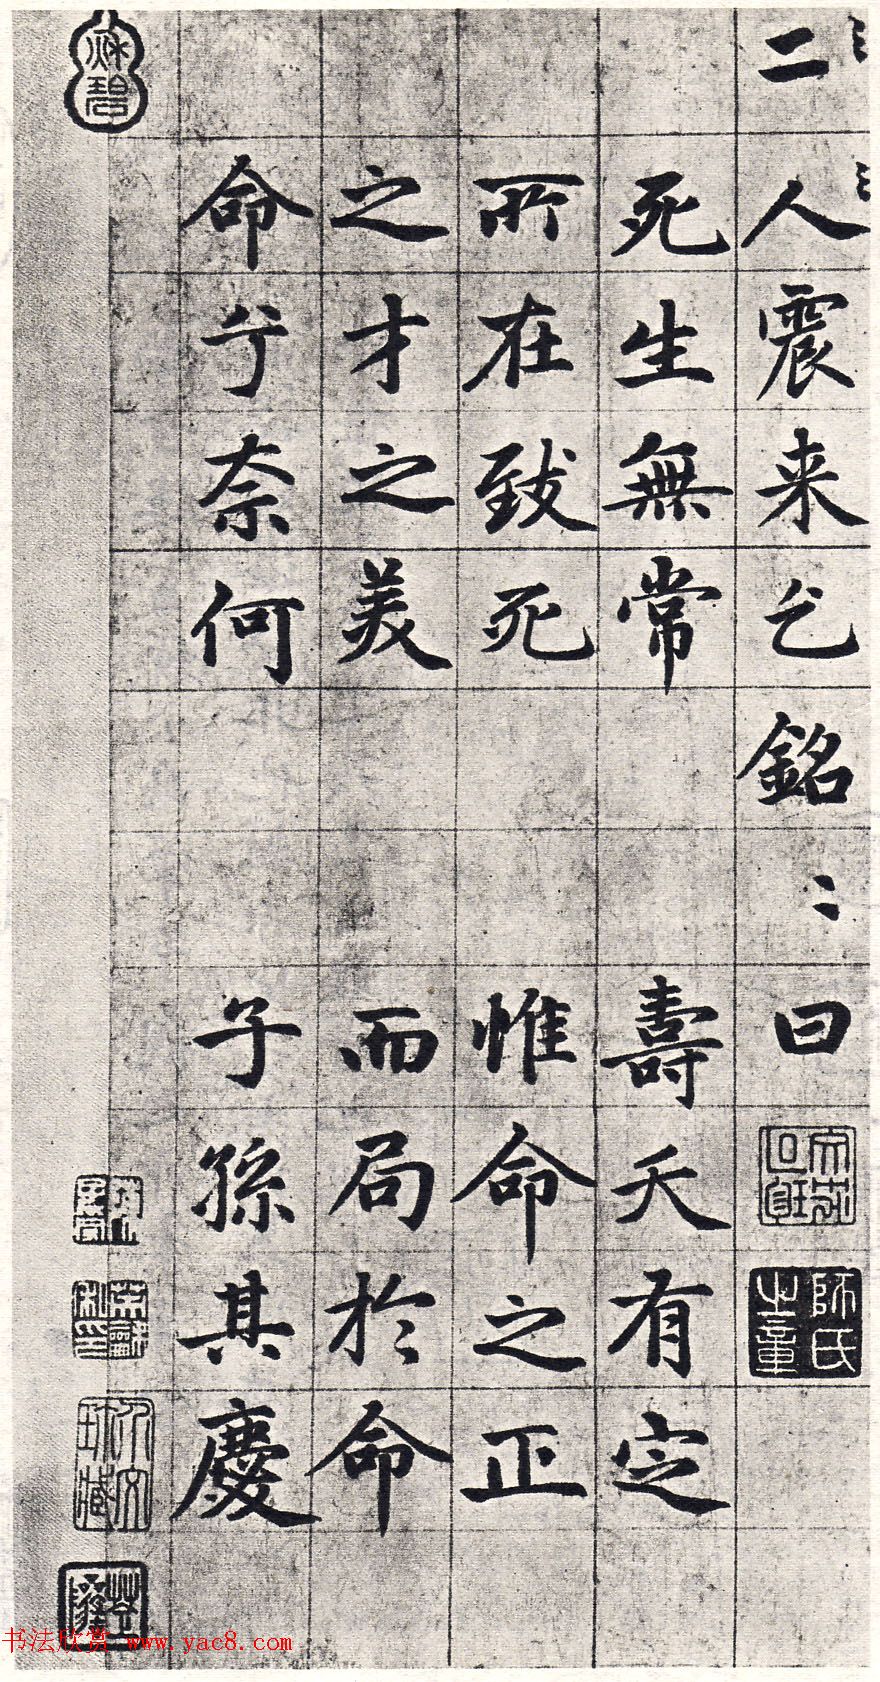 二人震来乞銘〻曰
死生無常　壽夭有定
所在致死　惟命之正
之才之美　而局於命
命兮奈何　子孫其慶
師氏之章
书法欣赏 www.yac8.com